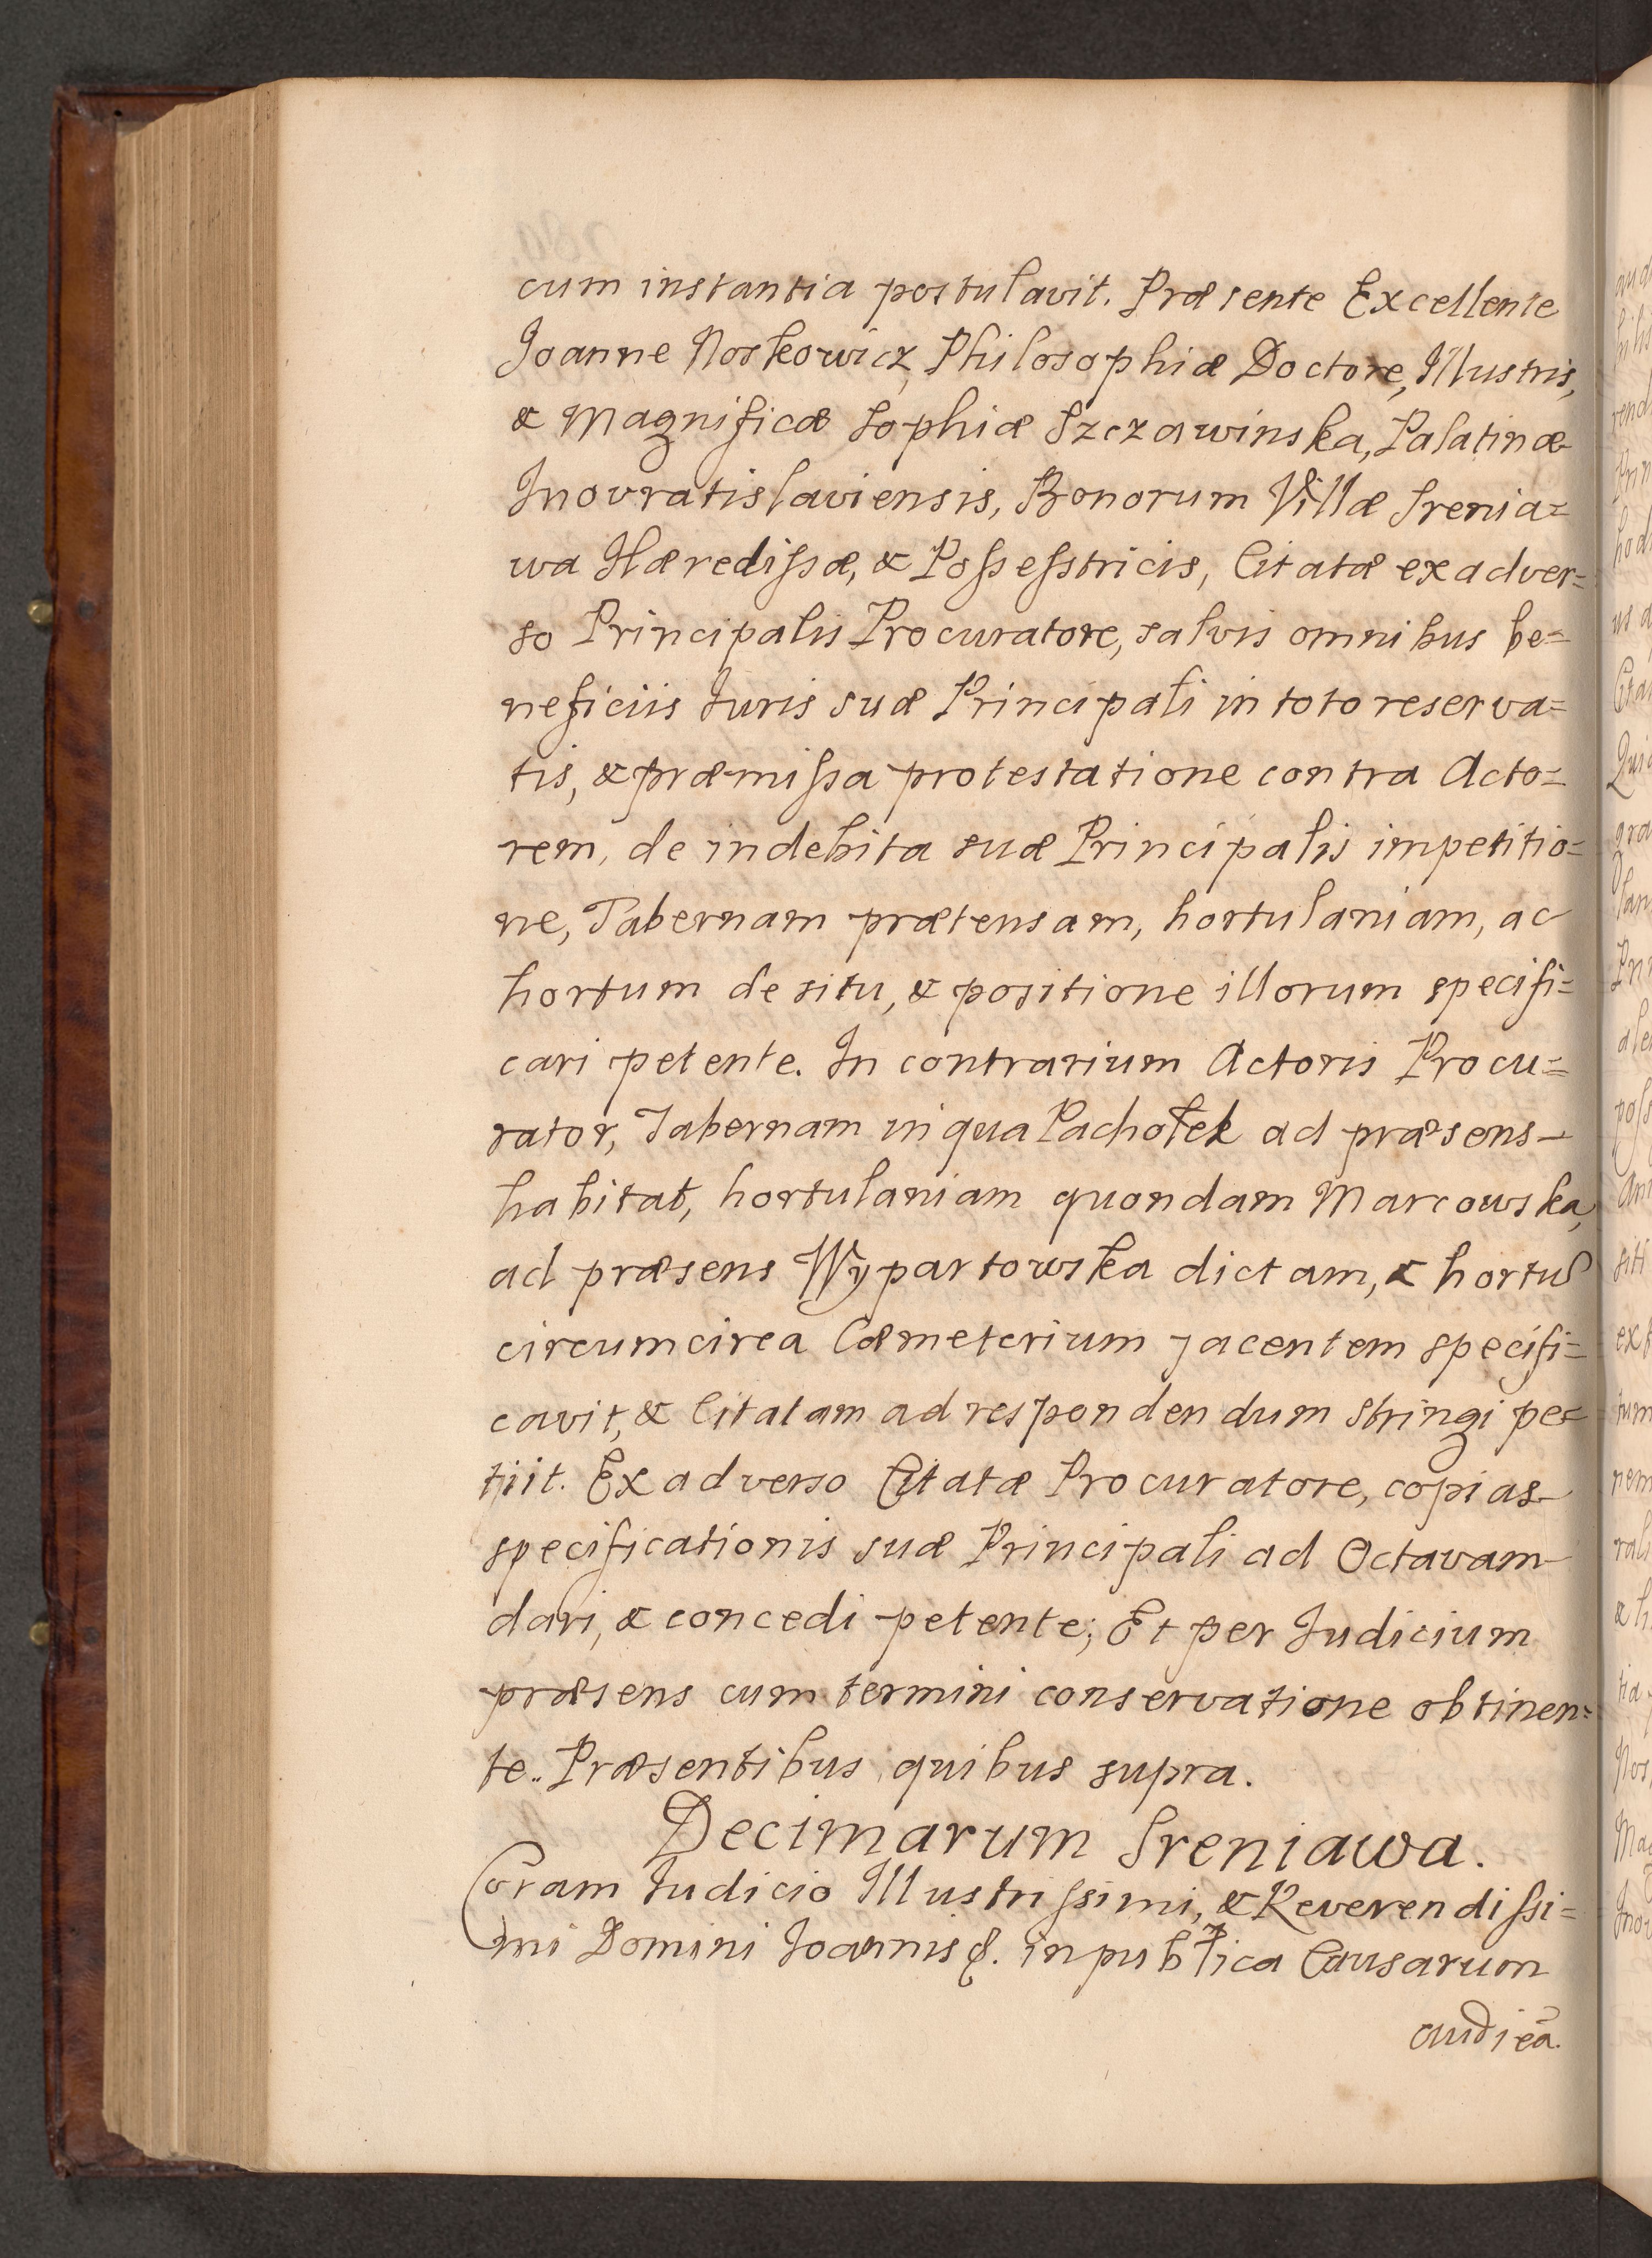 cum instantia postulavit. Præsente Excellente
Joanne Noskowicz, Philosophiæ Doctore, Illustris,
& Magnificæ Sophiæ Szczawinska, Palatinæ
Inovratislaviensis, Bonorum Villæ Srenia=
wa Hæredissæ, & Possesstricis, Citatæ ex adver=
so Principalis Procuratore, salvis omnibus be=
neficiis Juris suæ Principali in toto reserva=
tis, & præmissa protestatione contra Acto=
rem, de indebita suæ Principalis impetitio=
ne, Tabernam prætensam, hortulaniam, ac
hortum de situ, & positione illorum specifi=
cari petente. In contrarium Actoris Procu=
rator, Tabernam in qua Pachołek ad præsens
habitat, hortulaniam quondam Marcowska,
ad præsens Wypartowska dictam, & hortu
circumcirca Cæmeterium jacentem specifi=
cavit, & Citatam ad respondendum stringi pe=
tiit. Ex adverso Citatæ Procuratore, copias
specificationis suæ Principali ad Octavam
dari, & concedi petente; Et per Judicium
præsens cum termini conservatione obtinen=
te. Præsentibus quibus supra.
Decimarum Sreniawa.
Coram Judicio Illustrissimi, & Reverendissi=
mi Domini Joannis &. in publica Causarum
audiēa.